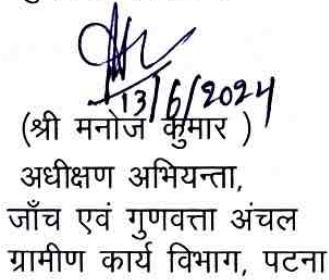 13/6/2024
(श्री मनोज कुमार )
अधीक्षण अभियन्ता,
जाँच एवं गुणवत्ता अंचल
ग्रामीण कार्य विभाग, पटना